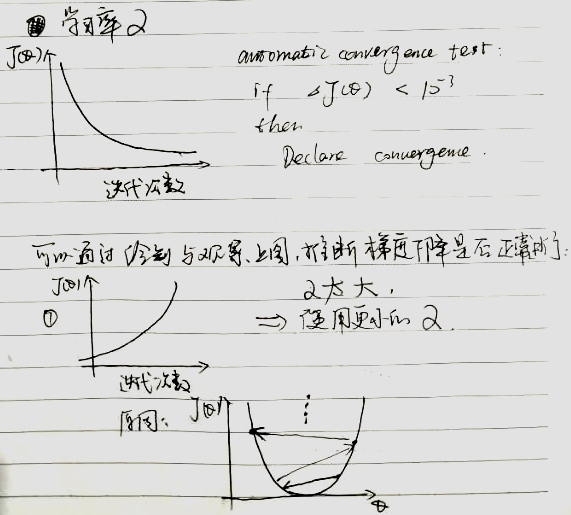 学习率α
J(θ)
automatic convergence test:
if ΔJ(θ) < 10⁻³
then
Declare convergence.
迭代次数
可以通过绘制与观察上图,推断梯度下降是否正常
J(θ)
α太大,
①
⇒ 使用更小的 α.
迭代次数
原因: J(θ)
θ